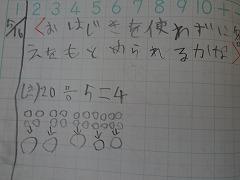 2 3 4 5 6 7 8 9 10
5/16
<おはじきを使わずに答
えをもとめられるかな>
(式)20÷5=4